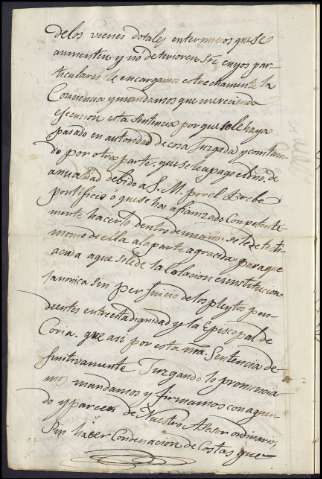 de los vienes dotales enterminos que se
aumenten y no deterioren sre. cuyos par-
ticulares le encargamos estrechamente la
Conciencia y mandamos que merezca da
execucion esta Sentencia por que esse haya
pasado en autoridad de cosa Juzgada y constan
do por otra parte, que se le a pagado no. de
anualidad debido a S. M. por el Brebe
pontificio o que se ha afianzado Competente
mente hacerla dentro de un año, se le de testi
monio de ella a la parte agraciada para que
acuda a que sele de la Colacion e institucion
canonica sin perjuicio de los pleytos pen-
dientes entre esta dignidad y la Episcopal de
Coria. que asi por esta nra. Sentencia de-
finitivamente Juzgando lo pronuncia
mos mandamos y firmamos con acuer
do y parecer de Nuestro Asesor ordinario,
sin hacer Condenacion de Costas que